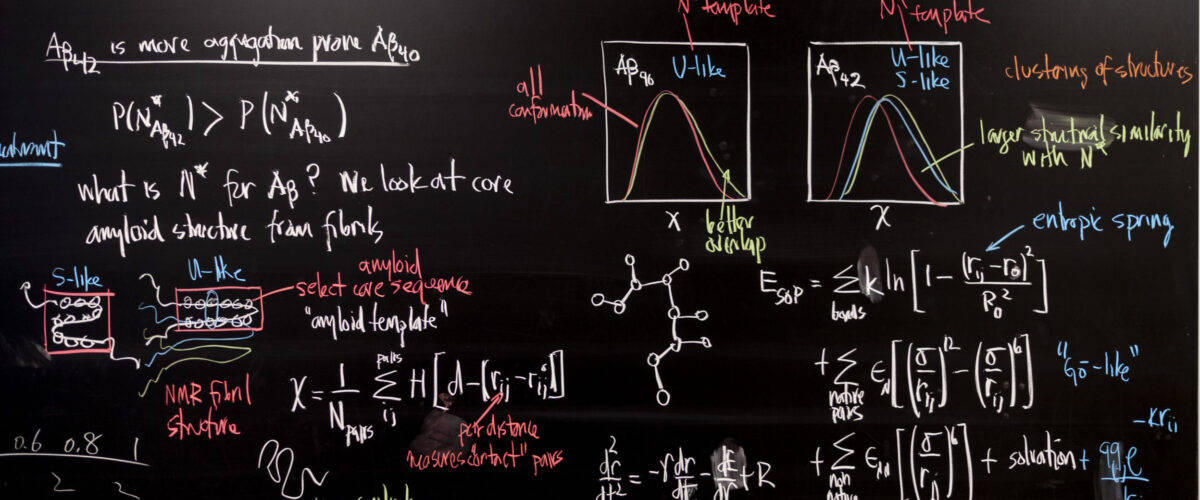 Aβ42 is more aggregation prone Aβ40
P(N*Aβ42) > P(N*Aβ40)
what is N* for Aβ? We look at core
amyloid structure from fibrils
S-like
U-like
amyloid
select core sequence
"amyloid template"
NMR fibril
structure
χ = 1/Npairs Σij pairs H[d-|rij-rij°|]
pair distance
measures "contact" pairs
0.6 0.8 1
2 2
N* template
Aβ40 U-like
all
conformation
χ
better
overlap
N* template
Aβ42 U-like
S-like
χ
clustering of structures
larger structural similarity
with N*
entropic spring
ESOP = Σbonds k ln[1 - (rij-r0)²/R0²]
+ Σnative pairs ϵN[(σ/rij)^12 - (σ/rij)^6]
"Gō-like"
+ Σnon native ϵNN[(σ/rij)^6] + solvation +
-κrij
d²r/dt² = -γ dr/dt - dE/dr + R